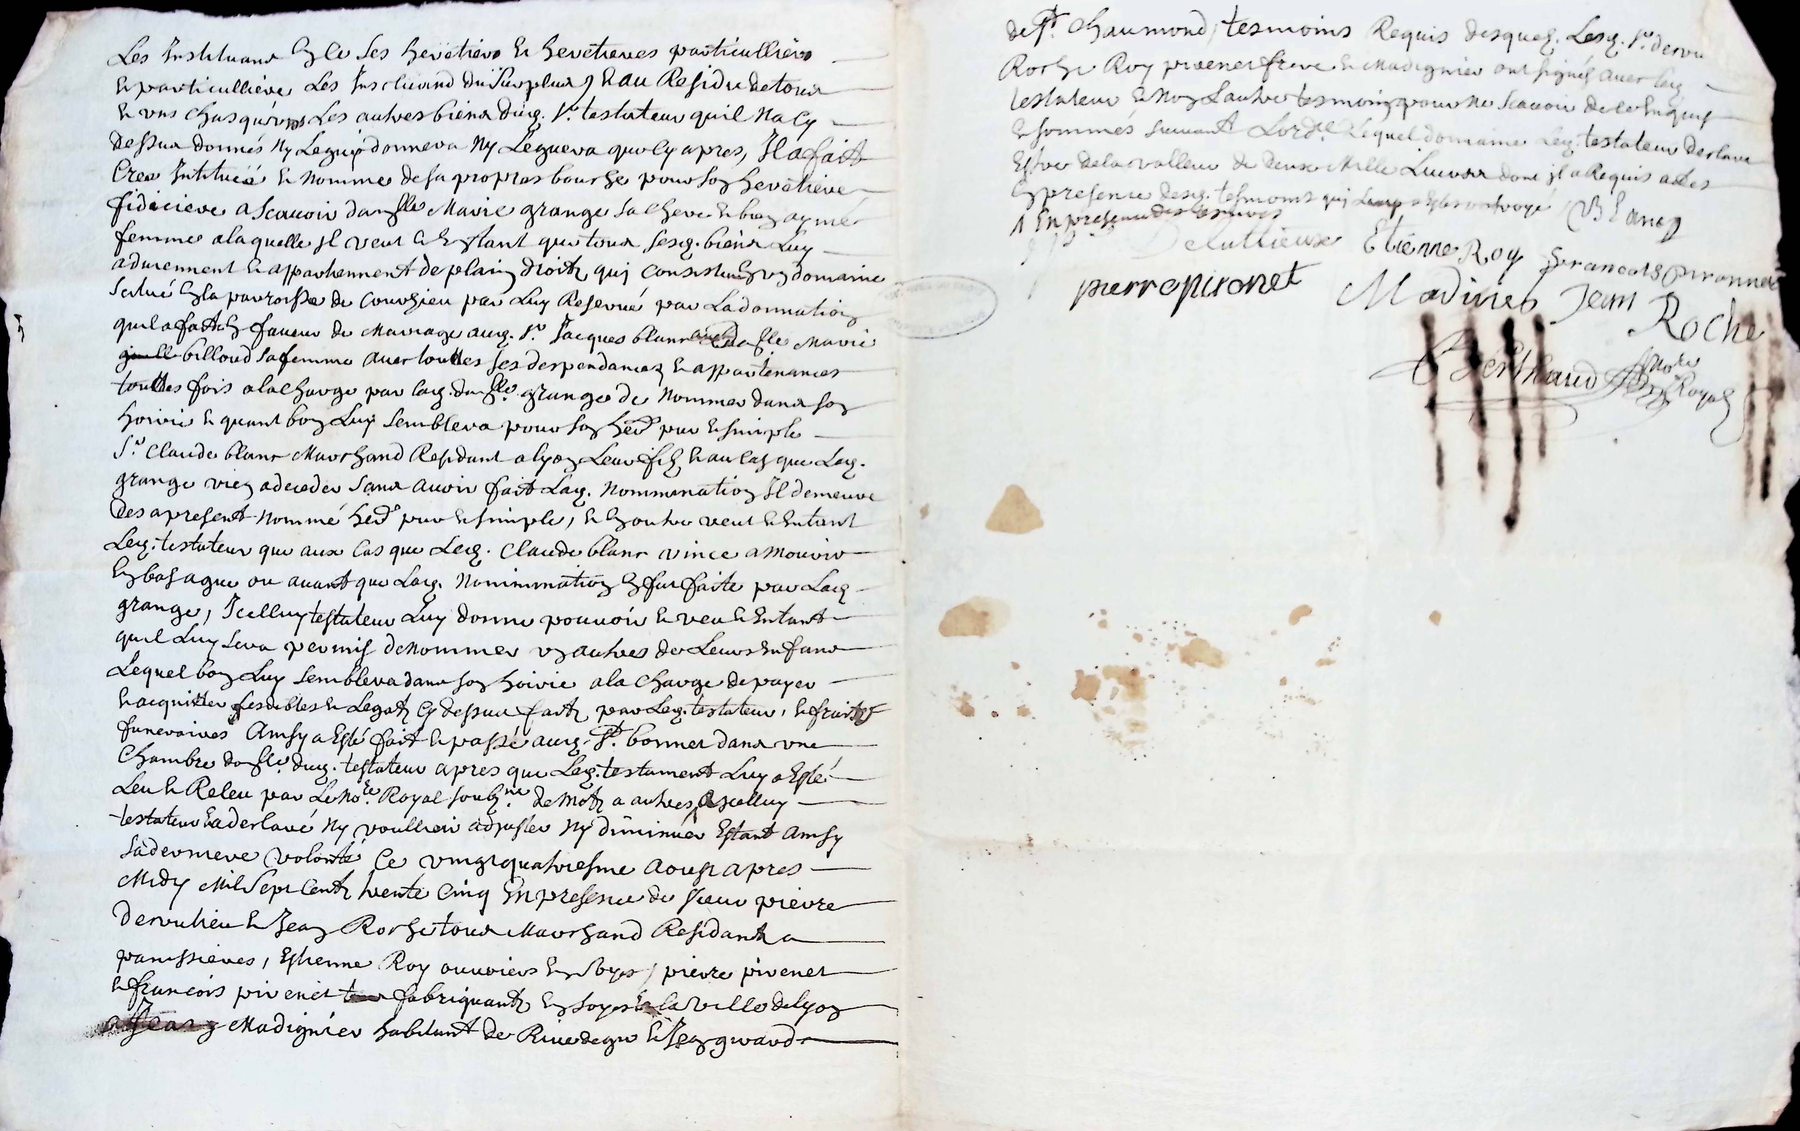 Les Instituant en ce ses heretiers & heretieres particulliers
& particulliere Les Incluand du surplus, & au Residu de tous
& uns chasqu'uns Les autres biens dud. Sr. testateur quil Na cy
dessus donnés Ny Legués donnera Ny Leguera que cy apres, Il a fait
Crée Institüée & Nomme de sa propres bouche pour son heretiere
fidiciere a Scauoir damlle Marie grange sa chere & bien aymé
femme a laquelle Il veut & Entant que tous sesd. biens Luy
aduiennent & appartiennent de plain droits, quj Consistent en vn domaine
scitué En la parroisse de Courzieu par Luy Reservué par La donnation
quil a fait En faueur de Mariage aud. Sr Jacques blanc & dlle Marie
billoud sa femme auec touttes ses despendances & appartenances
touttes fois a la charge par lad. damlle. grange de Nommer dans son
hoirie & quant bon Luy Semblera pour son herr pur & simple
Sr. Claude blanc Marchand Residant a lyon Leur fils, & au Cas que Lad.
grange vien a deceder sans auoir fait Lad. Nommination Il demeure
des apresent Nommé herr pur & simple, & En outre veut & Entant
Led. testateur que aux Cas que Led. Claude blanc vince a Mourir
En bas ague ou auant que Lad. Nommination En fut faite par Lad
grange, Icelluy testateur Luy donne pouuoir & veu & Entant
quil Luy sera permis de Nommer vn autres de Leurs Enfans
Lequel bon Luy Semblera dans son hoirie a la charge de payer
& acquitter ses debtes & Legats cy dessus faits par Led. testateur, & fraits
funeraires Ainsy a Esté fait & passé aud. St. bonnet dans vne
Chambre dud. testateur apres que Led. testament Luy a Esté
Leu & Releu par Le Nore. Royal soubne. de Mots a autres, Icelluy
testateur a declaré Ny voulloir adjuster Ny diminuer Estant Ainsy
sa derniere volonté Ce vingt quatriesme aoust apres
Midy Mil Sept Cents trente Cinq En presence de Sieur pierre
dervulieu & Jean Roche tous Marchand Residants a
panissieres, Estienne Roy ouuriers En Soyes, pierre pironet
& francois pironet fabriquants En soyes de la Ville de lyon
Jean Madignier habitant de Riuedegie & Jean girard
de St. Chaumond, tesmoins Requis desquels Lesd. Srs dervu
Roche Roy pironet frere & Madignier ont signés auec led
testateur & Non Lautre tesmoins pour ne scauoir de ce Enquis
& sommés suiuant Lordce Lequel domaine Led. testateur declare
Estre de la valleur de deux Mille Liures dont Jl a Requis actes
En presence desd. tesmoins
1 En presence des tesmoins Blanc
Etienne Roy francois pironnet
pierre pironet Madinier Jean
Roche
Berthaud Nore
Royal